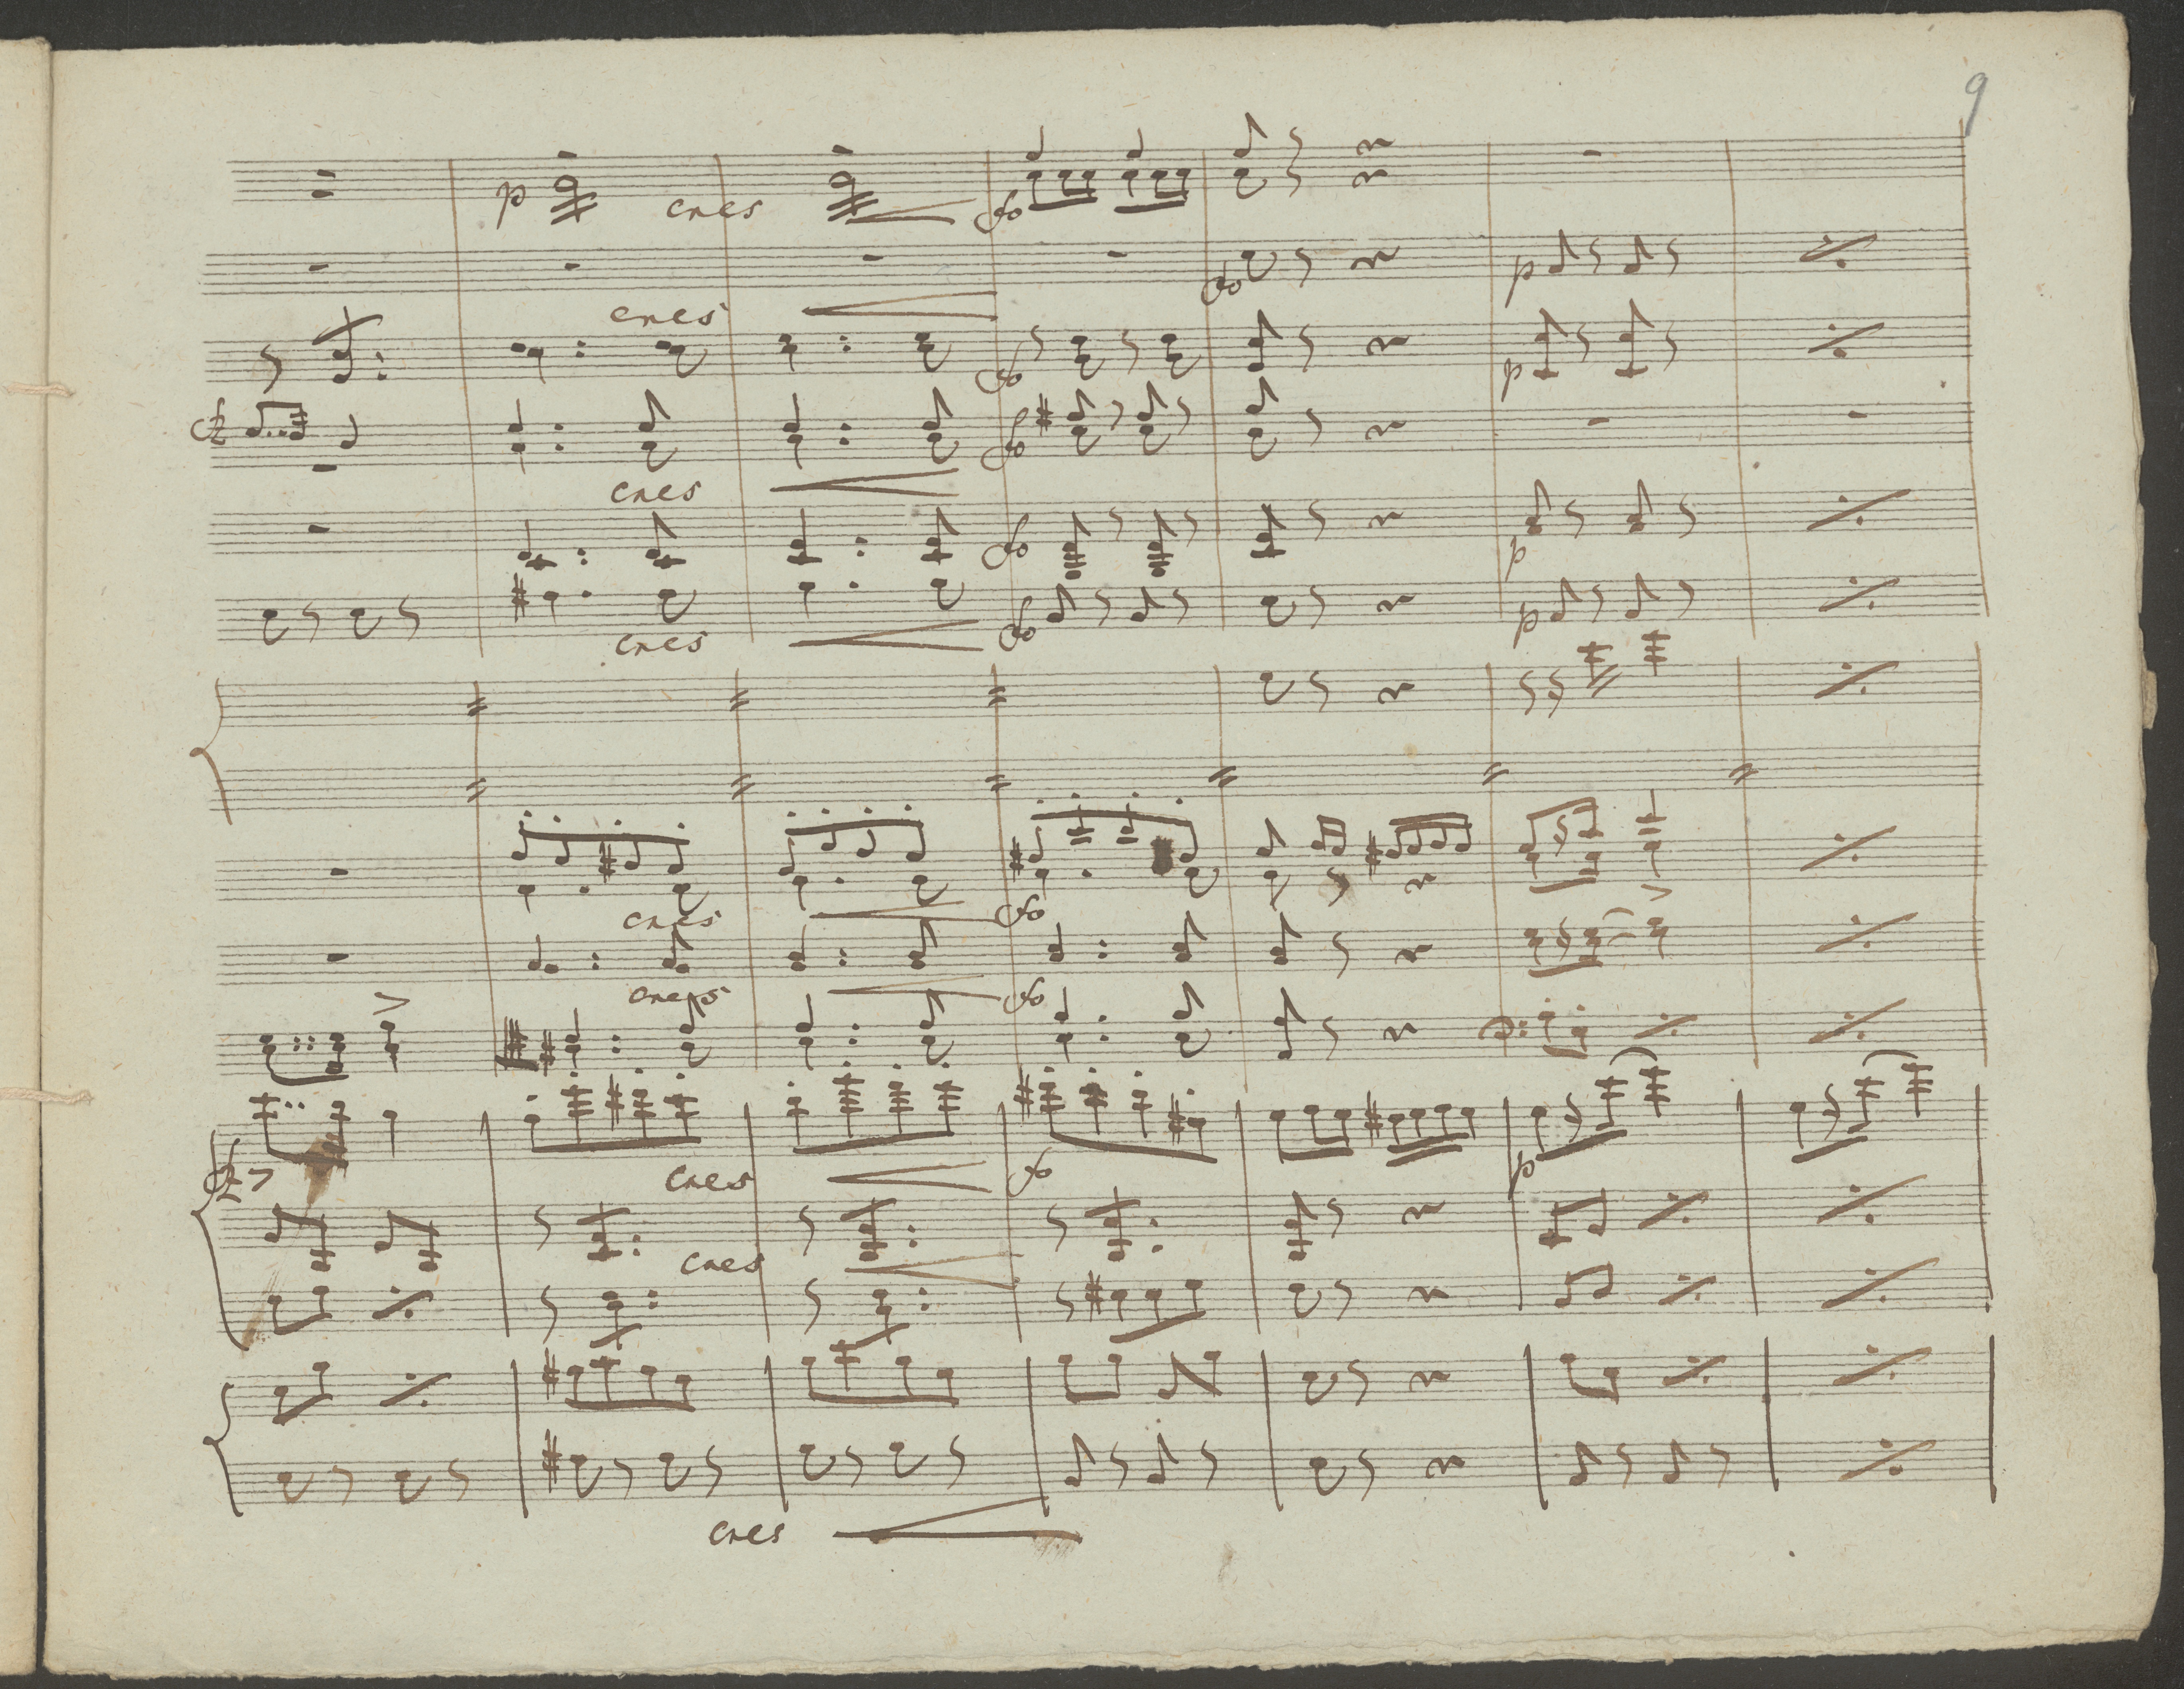 9
p cres fo
fo p
cres fo p
fz fo
cres fo p
cres fo p
cres fo
cres fo
cres
fz fo p
cres
cres